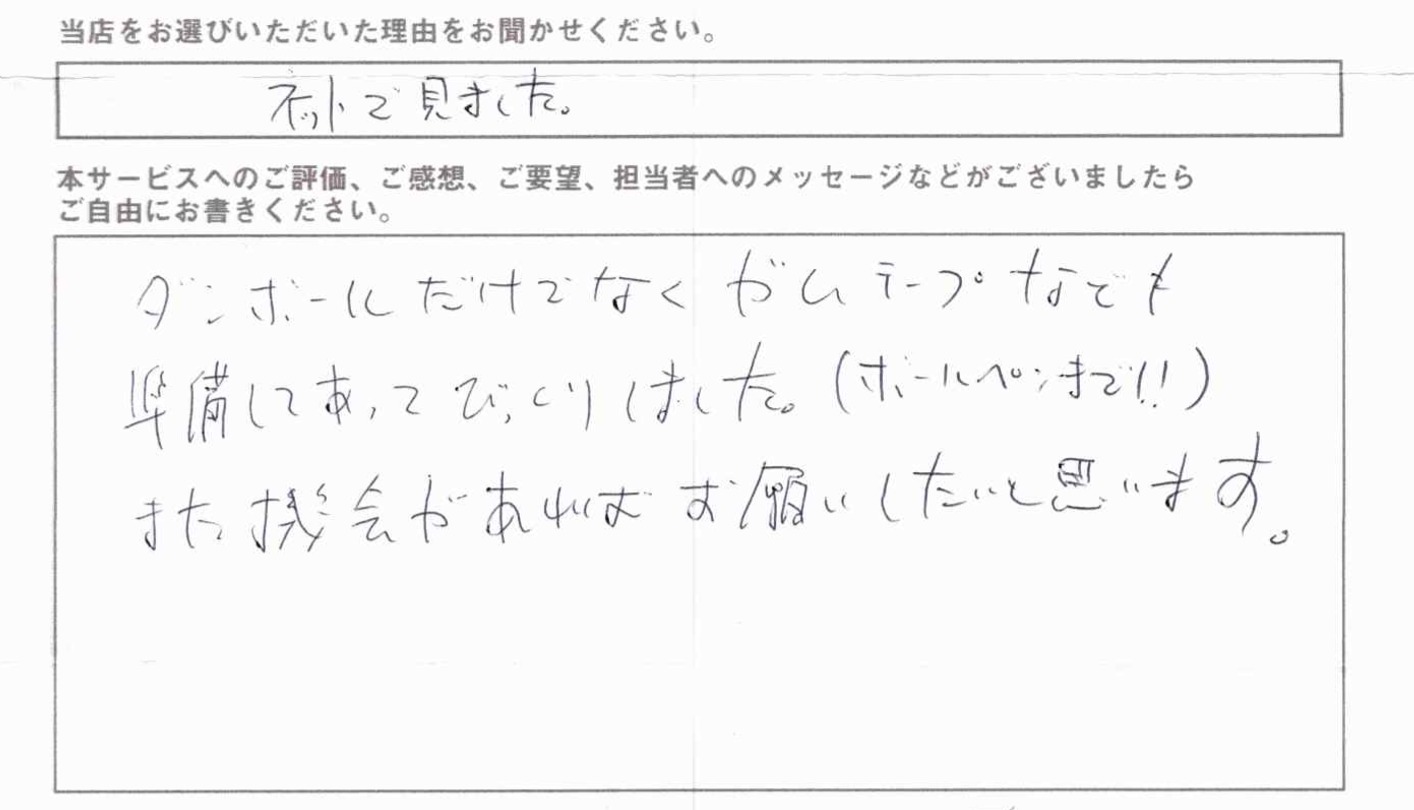 当店をお選びいただいた理由をお聞かせください。
ネットで見ました。
本サービスへのご評価、ご感想、ご要望、担当者へのメッセージなどがございましたら
ご自由にお書きください。
ダンボールだけでなくガムテープなども
準備してあってびっくりしました。(ボールペンまで!!)
また機会があればお願いしたいと思います。